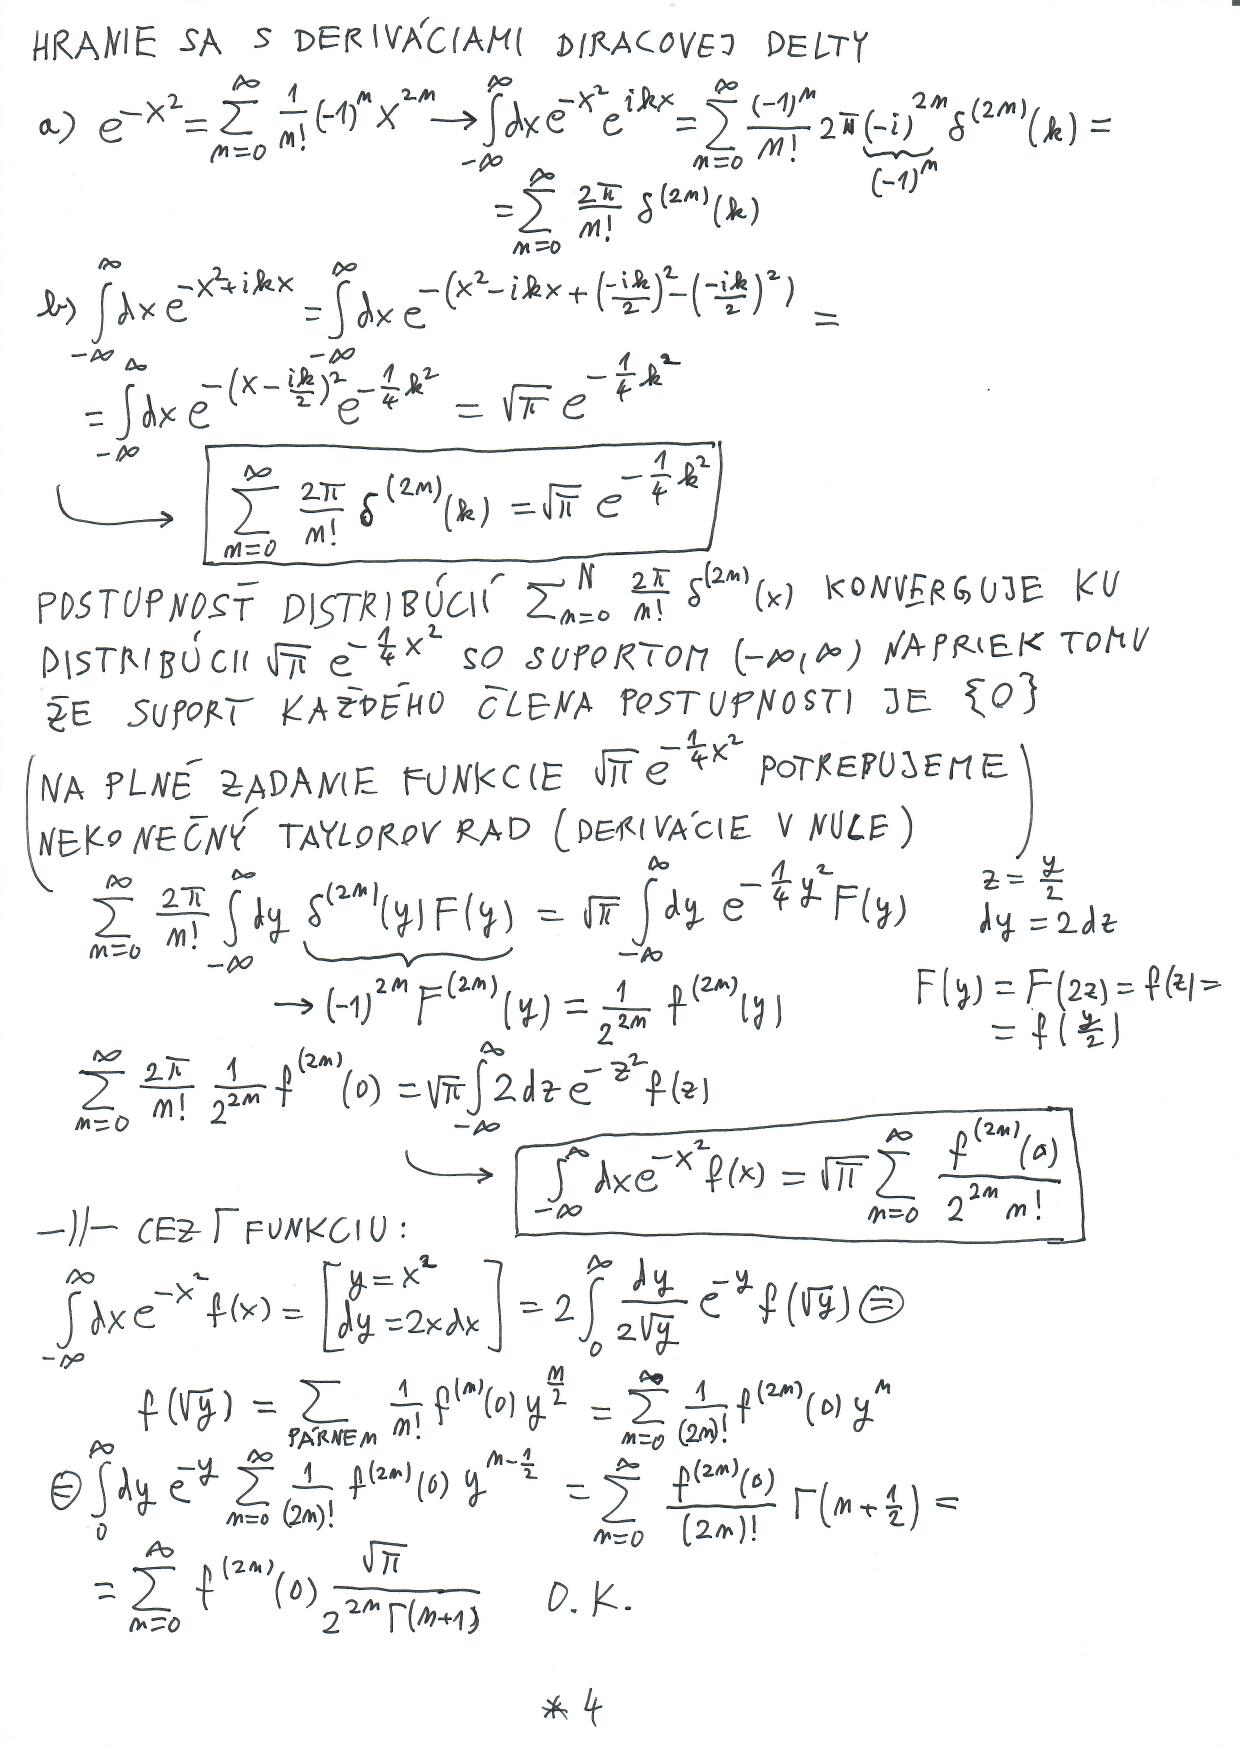 HRANIE SA S DERIVÁCIAMI DIRACOVEJ DELTY
a) $e^{-x^2} = \sum_{n=0}^{\infty} \frac{1}{n!} (-1)^n x^{2n} \rightarrow \int_{-\infty}^{\infty} dx e^{-x^2} e^{ikx} = \sum_{n=0}^{\infty} \frac{(-1)^n}{n!} 2\pi \underbrace{(-i)^{2n}}_{(-1)^n} \delta^{(2n)}(k) =$
$= \sum_{n=0}^{\infty} \frac{2\pi}{n!} \delta^{(2n)}(k)$
b) $\int_{-\infty}^{\infty} dx e^{-x^2+ikx} = \int_{-\infty}^{\infty} dx e^{-(x^2-ikx+(\frac{-ik}{2})^2-(\frac{-ik}{2})^2)} =$
$= \int_{-\infty}^{\infty} dx e^{-(x-\frac{ik}{2})^2} e^{-\frac{1}{4}k^2} = \sqrt{\pi} e^{-\frac{1}{4}k^2}$
$\rightarrow \boxed{\sum_{n=0}^{\infty} \frac{2\pi}{n!} \delta^{(2n)}(k) = \sqrt{\pi} e^{-\frac{1}{4}k^2}}$
POSTUPNOSŤ DISTRIBÚCIÍ $\sum_{n=0}^{N} \frac{2\pi}{n!} \delta^{(2n)}(x)$ KONVERGUJE KU
DISTRIBÚCII $\sqrt{\pi} e^{-\frac{1}{4}x^2}$ SO SUPORTOM $(-\infty, \infty)$ NAPRIEK TOMU
ŽE SUPORT KAŽDÉHO ČLENA POSTUPNOSTI JE {0}
(NA PLNÉ ZADANIE FUNKCIE $\sqrt{\pi} e^{-\frac{1}{4}x^2}$ POTREBUJEME
NEKONEČNÝ TAYLOROV RAD (DERIVÁCIE V NULE))
$\sum_{n=0}^{\infty} \frac{2\pi}{n!} \int_{-\infty}^{\infty} dy \underbrace{\delta^{(2n)}(y) F(y)} = \sqrt{\pi} \int_{-\infty}^{\infty} dy e^{-\frac{1}{4}y^2} F(y)$
$z = \frac{y}{2}$
$dy = 2dz$
$\rightarrow (-1)^{2n} F^{(2n)}(y) = \frac{1}{2^{2n}} f^{(2n)}(y)$
$F(y) = F(2z) = f(z) =$
$= f(\frac{y}{2})$
$\sum_{n=0}^{\infty} \frac{2\pi}{n!} \frac{1}{2^{2n}} f^{(2n)}(0) = \sqrt{\pi} \int_{-\infty}^{\infty} 2dz e^{-z^2} f(z)$
$\rightarrow \boxed{\int_{-\infty}^{\infty} dx e^{-x^2} f(x) = \sqrt{\pi} \sum_{n=0}^{\infty} \frac{f^{(2n)}(0)}{2^{2n} n!}}$
—//— CEZ Γ FUNKCIU:
$\int_{-\infty}^{\infty} dx e^{-x^2} f(x) = \begin{bmatrix} y = x^2 \\ dy = 2xdx \end{bmatrix} = 2 \int_{0}^{\infty} \frac{dy}{2\sqrt{y}} e^{-y} f(\sqrt{y}) ⊜$
$f(\sqrt{y}) = \sum_{PÁRNE n} \frac{1}{n!} f^{(n)}(0) y^{\frac{n}{2}} = \sum_{n=0}^{\infty} \frac{1}{(2n)!} f^{(2n)}(0) y^n$
$⊜ \int_{0}^{\infty} dy e^{-y} \sum_{n=0}^{\infty} \frac{1}{(2n)!} f^{(2n)}(0) y^{n-\frac{1}{2}} = \sum_{n=0}^{\infty} \frac{f^{(2n)}(0)}{(2n)!} \Gamma(n+\frac{1}{2}) =$
$= \sum_{n=0}^{\infty} f^{(2n)}(0) \frac{\sqrt{\pi}}{2^{2n} \Gamma(n+1)}$ O.K.
* 4